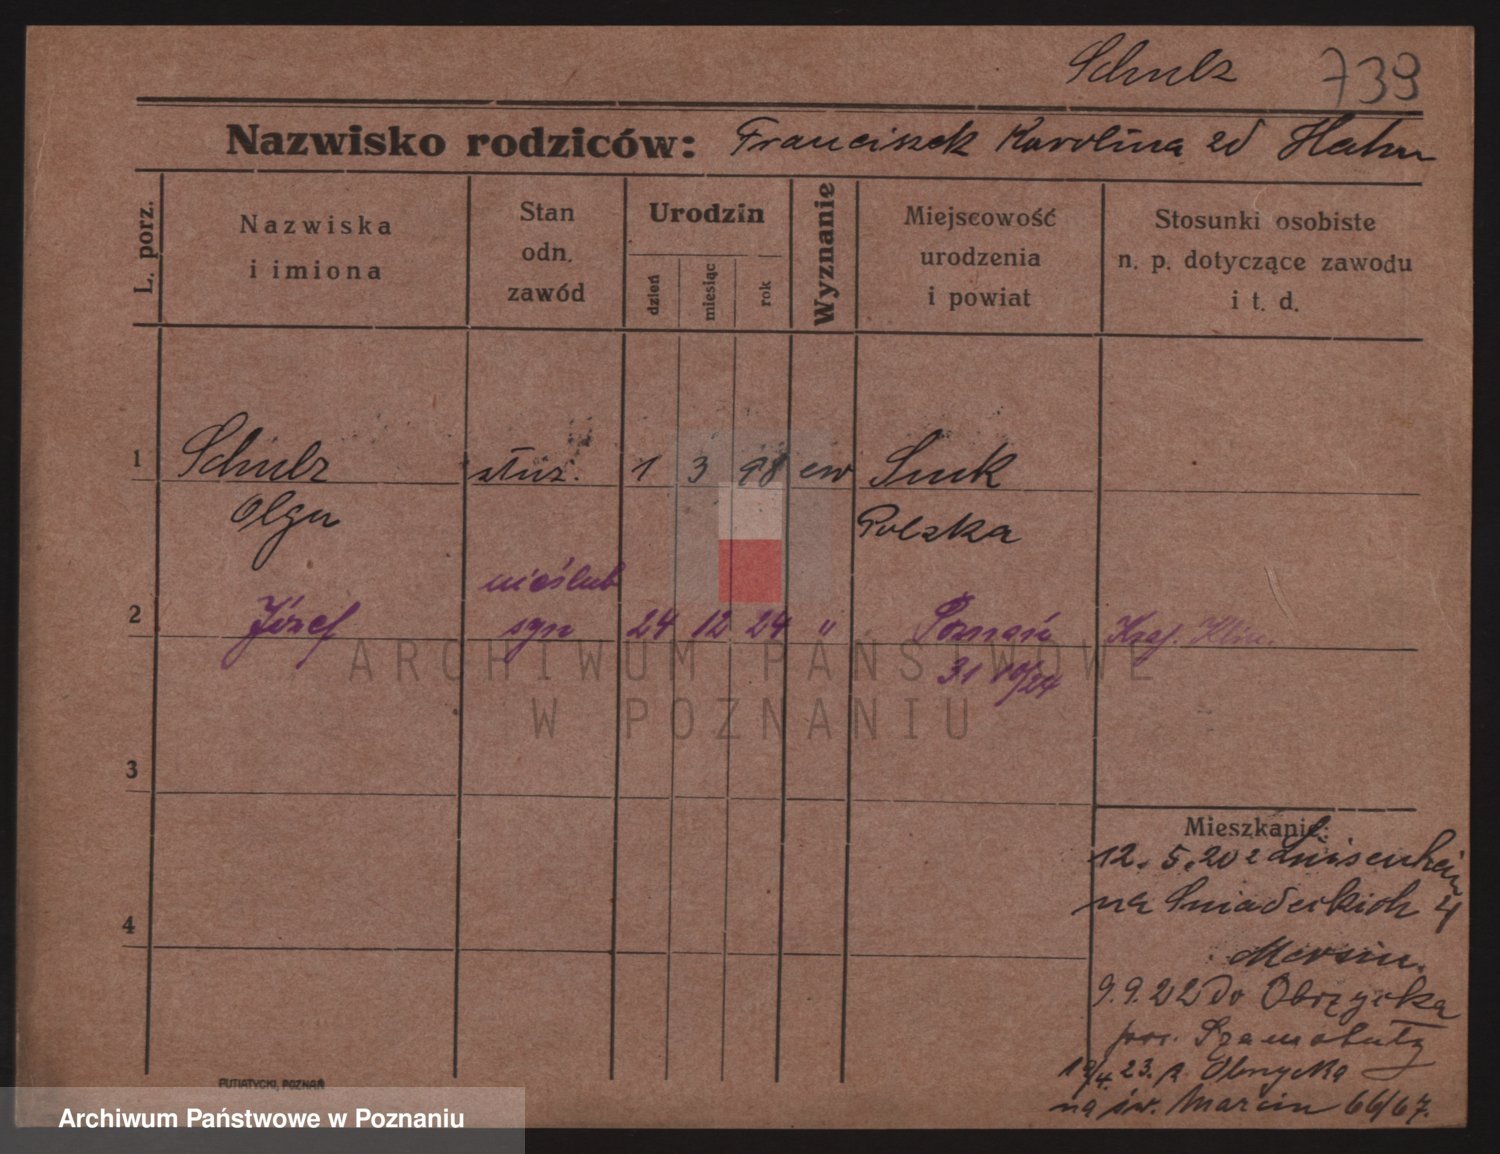 Schulz 739
Nazwisko rodziców: Franciszek Karolina zd Hahn
L. porz.
Nazwiska
i imiona
Stan
odn.
zawód
Urodzin
dzień
miesiąc
rok
Wyznanie
Miejscowość
urodzenia
i powiat
Stosunki osobiste
n. p. dotyczące zawodu
i t. d.
1 Schulz służ. 1 3 98 ew
Olga Polska
nieślub
2 Józef syn 24 12 24 " Poznań
31 10/24
ARCHIWUM PAŃSTWOWE
W POZNANIU
3
Mieszkanie:
12. 5. 20 z
na Śniadeckich 4
4
9. 9. 22 do Obrzycka
pow. Szamotuły
23. z Obrzycka
na św. Marcin 66/67.
PUTIATYCKI, POZNAŃ
Archiwum Państwowe w Poznaniu